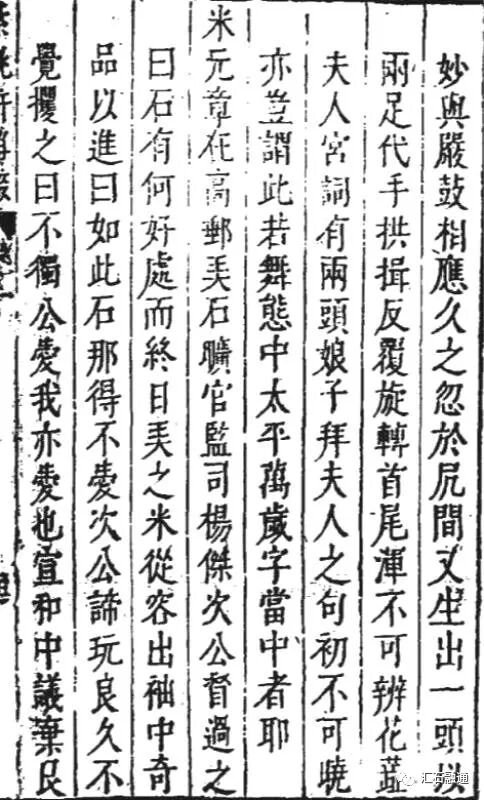 妙與嚴鼓相應久之忽於尻間又生出一頭以
兩足代手拱揖反覆旋轉首尾渾不可辨花蕋
夫人宮詞有兩頭娘子拜夫人之句初不可曉
亦豈謂此若舞態中太平萬歲字當中者耶
米元章在高郵美石曠官監司楊傑次公督過之
曰石有何好處而終日美之米從容出袖中奇
品以進曰如此石那得不愛次公諦玩良久不
覺攫之曰不獨公愛我亦愛也宣和中議棄艮
汇石融通